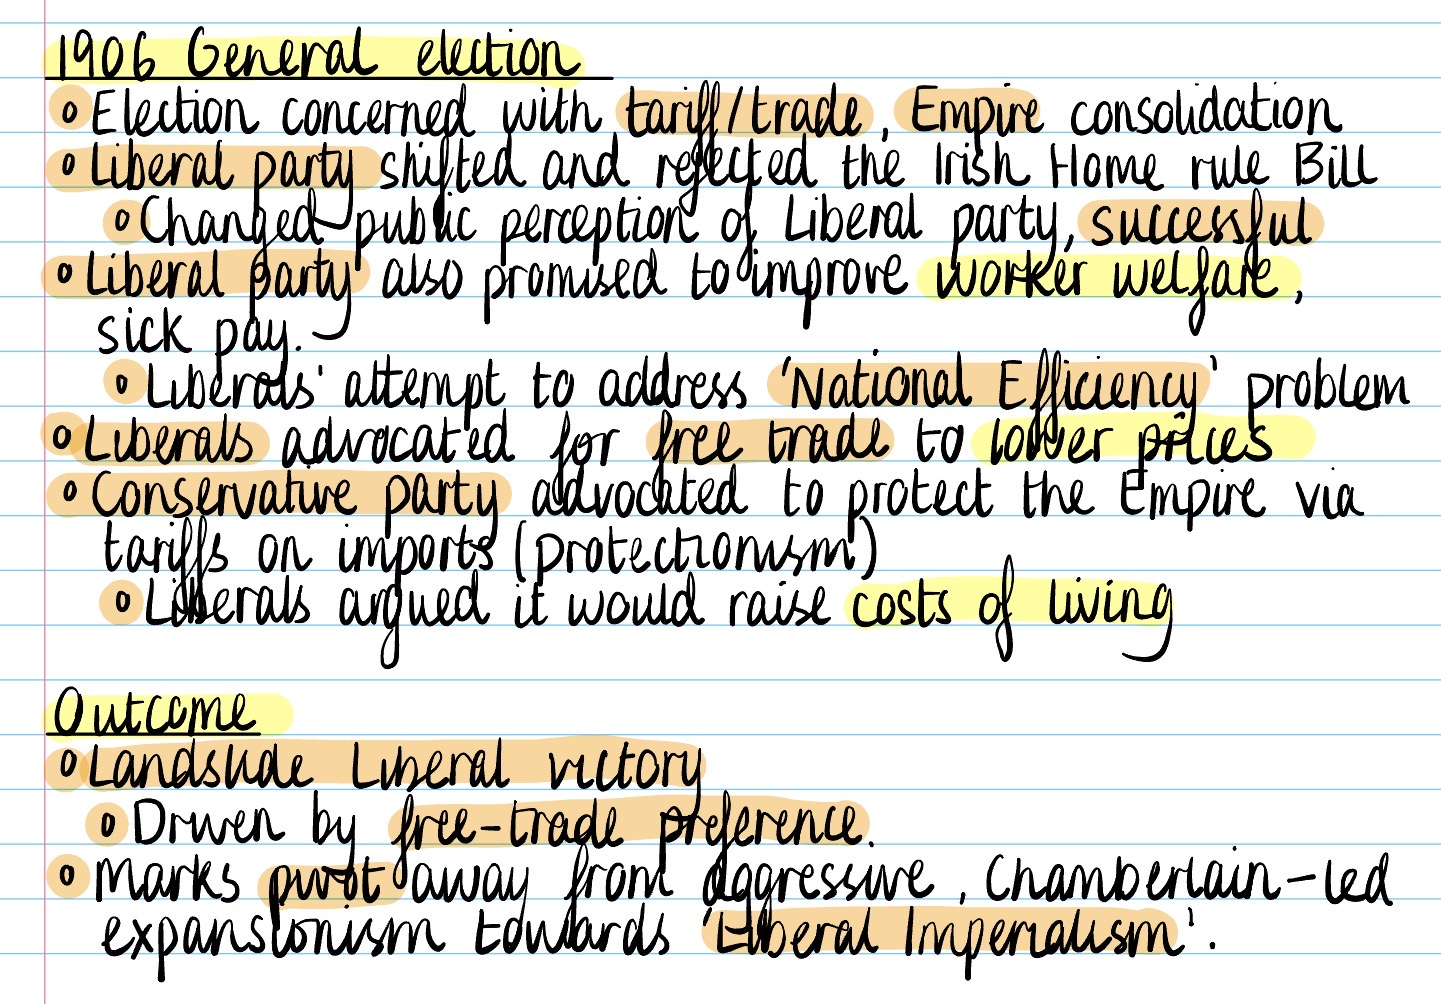 1906 General election
Election concerned with tariff/trade, Empire consolidation
Liberal party shifted and rejected the Irish Home rule Bill
Changed public perception of Liberal party, successful
Liberal party also promised to improve worker welfare,
sick pay.
Liberals' attempt to address 'National Efficiency' problem
Liberals advocated for free trade to lower prices
Conservative party advocated to protect the Empire via
tariffs on imports (protectionism)
Liberals argued it would raise costs of living
Outcome
Landslide Liberal victory
Driven by free-trade preference.
Marks pivot away from aggressive, Chamberlain-led
expansionism towards 'Liberal Imperialism'.